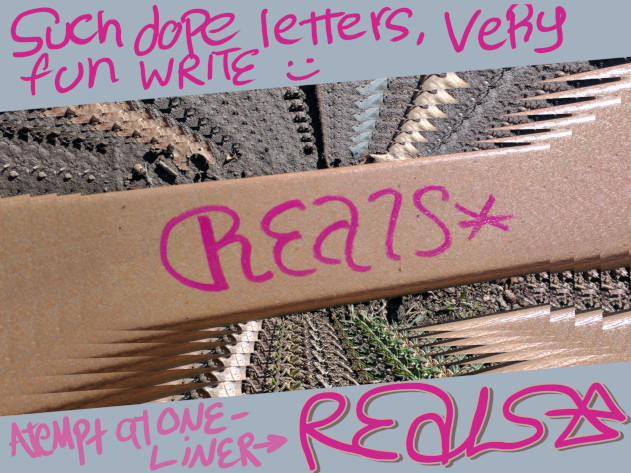 Such dope letters, VeRy
fun WRITE :)
REalS*
ATempt at ONE-
LINER→ REalS*